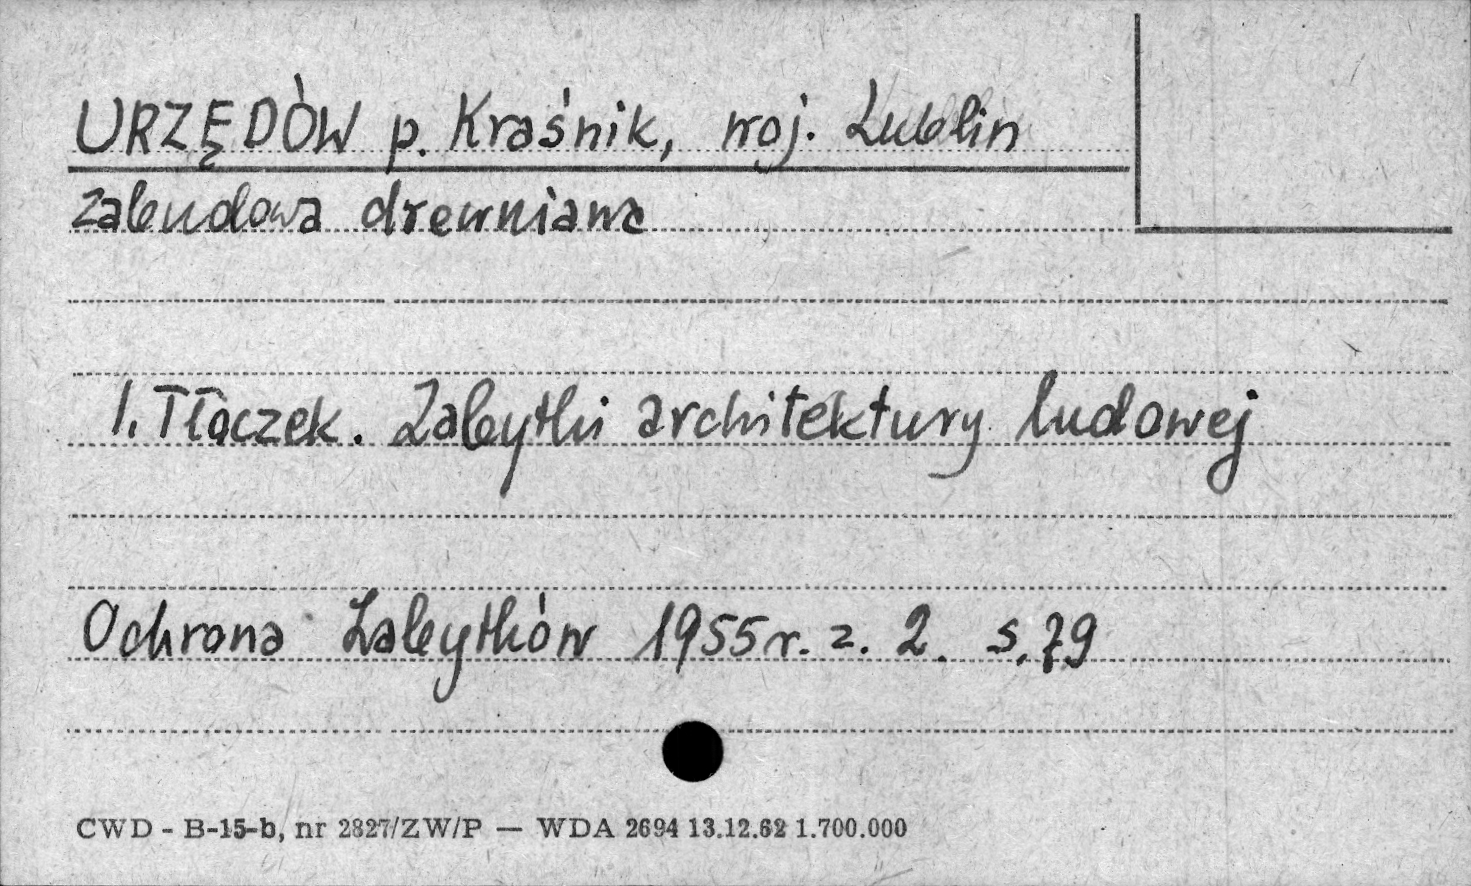 URZĘDÓW p. Kraśnik, woj. Lublin
Zabudowa drewniana
I. Tłoczek. Zabytki architektury ludowej
Ochrona Zabytków 1955 r. z. 2. s. 79
CWD - B-15-b, nr 2827/ZW/P — WDA 2694 13.12.62 1.700.000